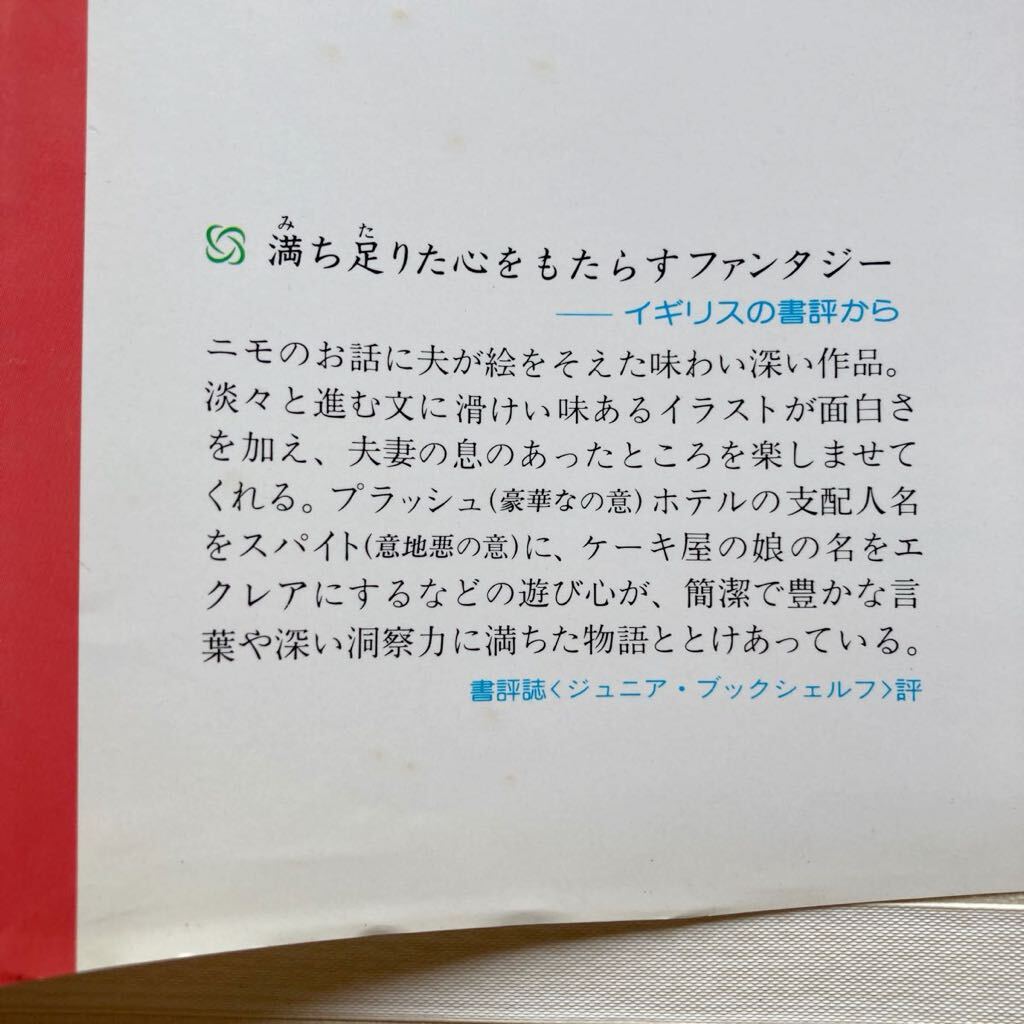 満ち足りた心をもたらすファンタジー
——イギリスの書評から
ニモのお話に夫が絵をそえた味わい深い作品。
淡々と進む文に滑けい味あるイラストが面白さ
を加え、夫妻の息のあったところを楽しませて
くれる。プラッシュ(豪華なの意)ホテルの支配人名
をスパイト(意地悪の意)に、ケーキ屋の娘の名をエ
クレアにするなどの遊び心が、簡潔で豊かな言
葉や深い洞察力に満ちた物語ととけあっている。
書評誌〈ジュニア・ブックシェルフ〉評